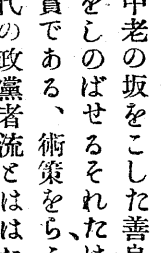 中老の坂をこした善良
をしのばせるそれは
貫である、術策をらく
代の政黨者流とはは